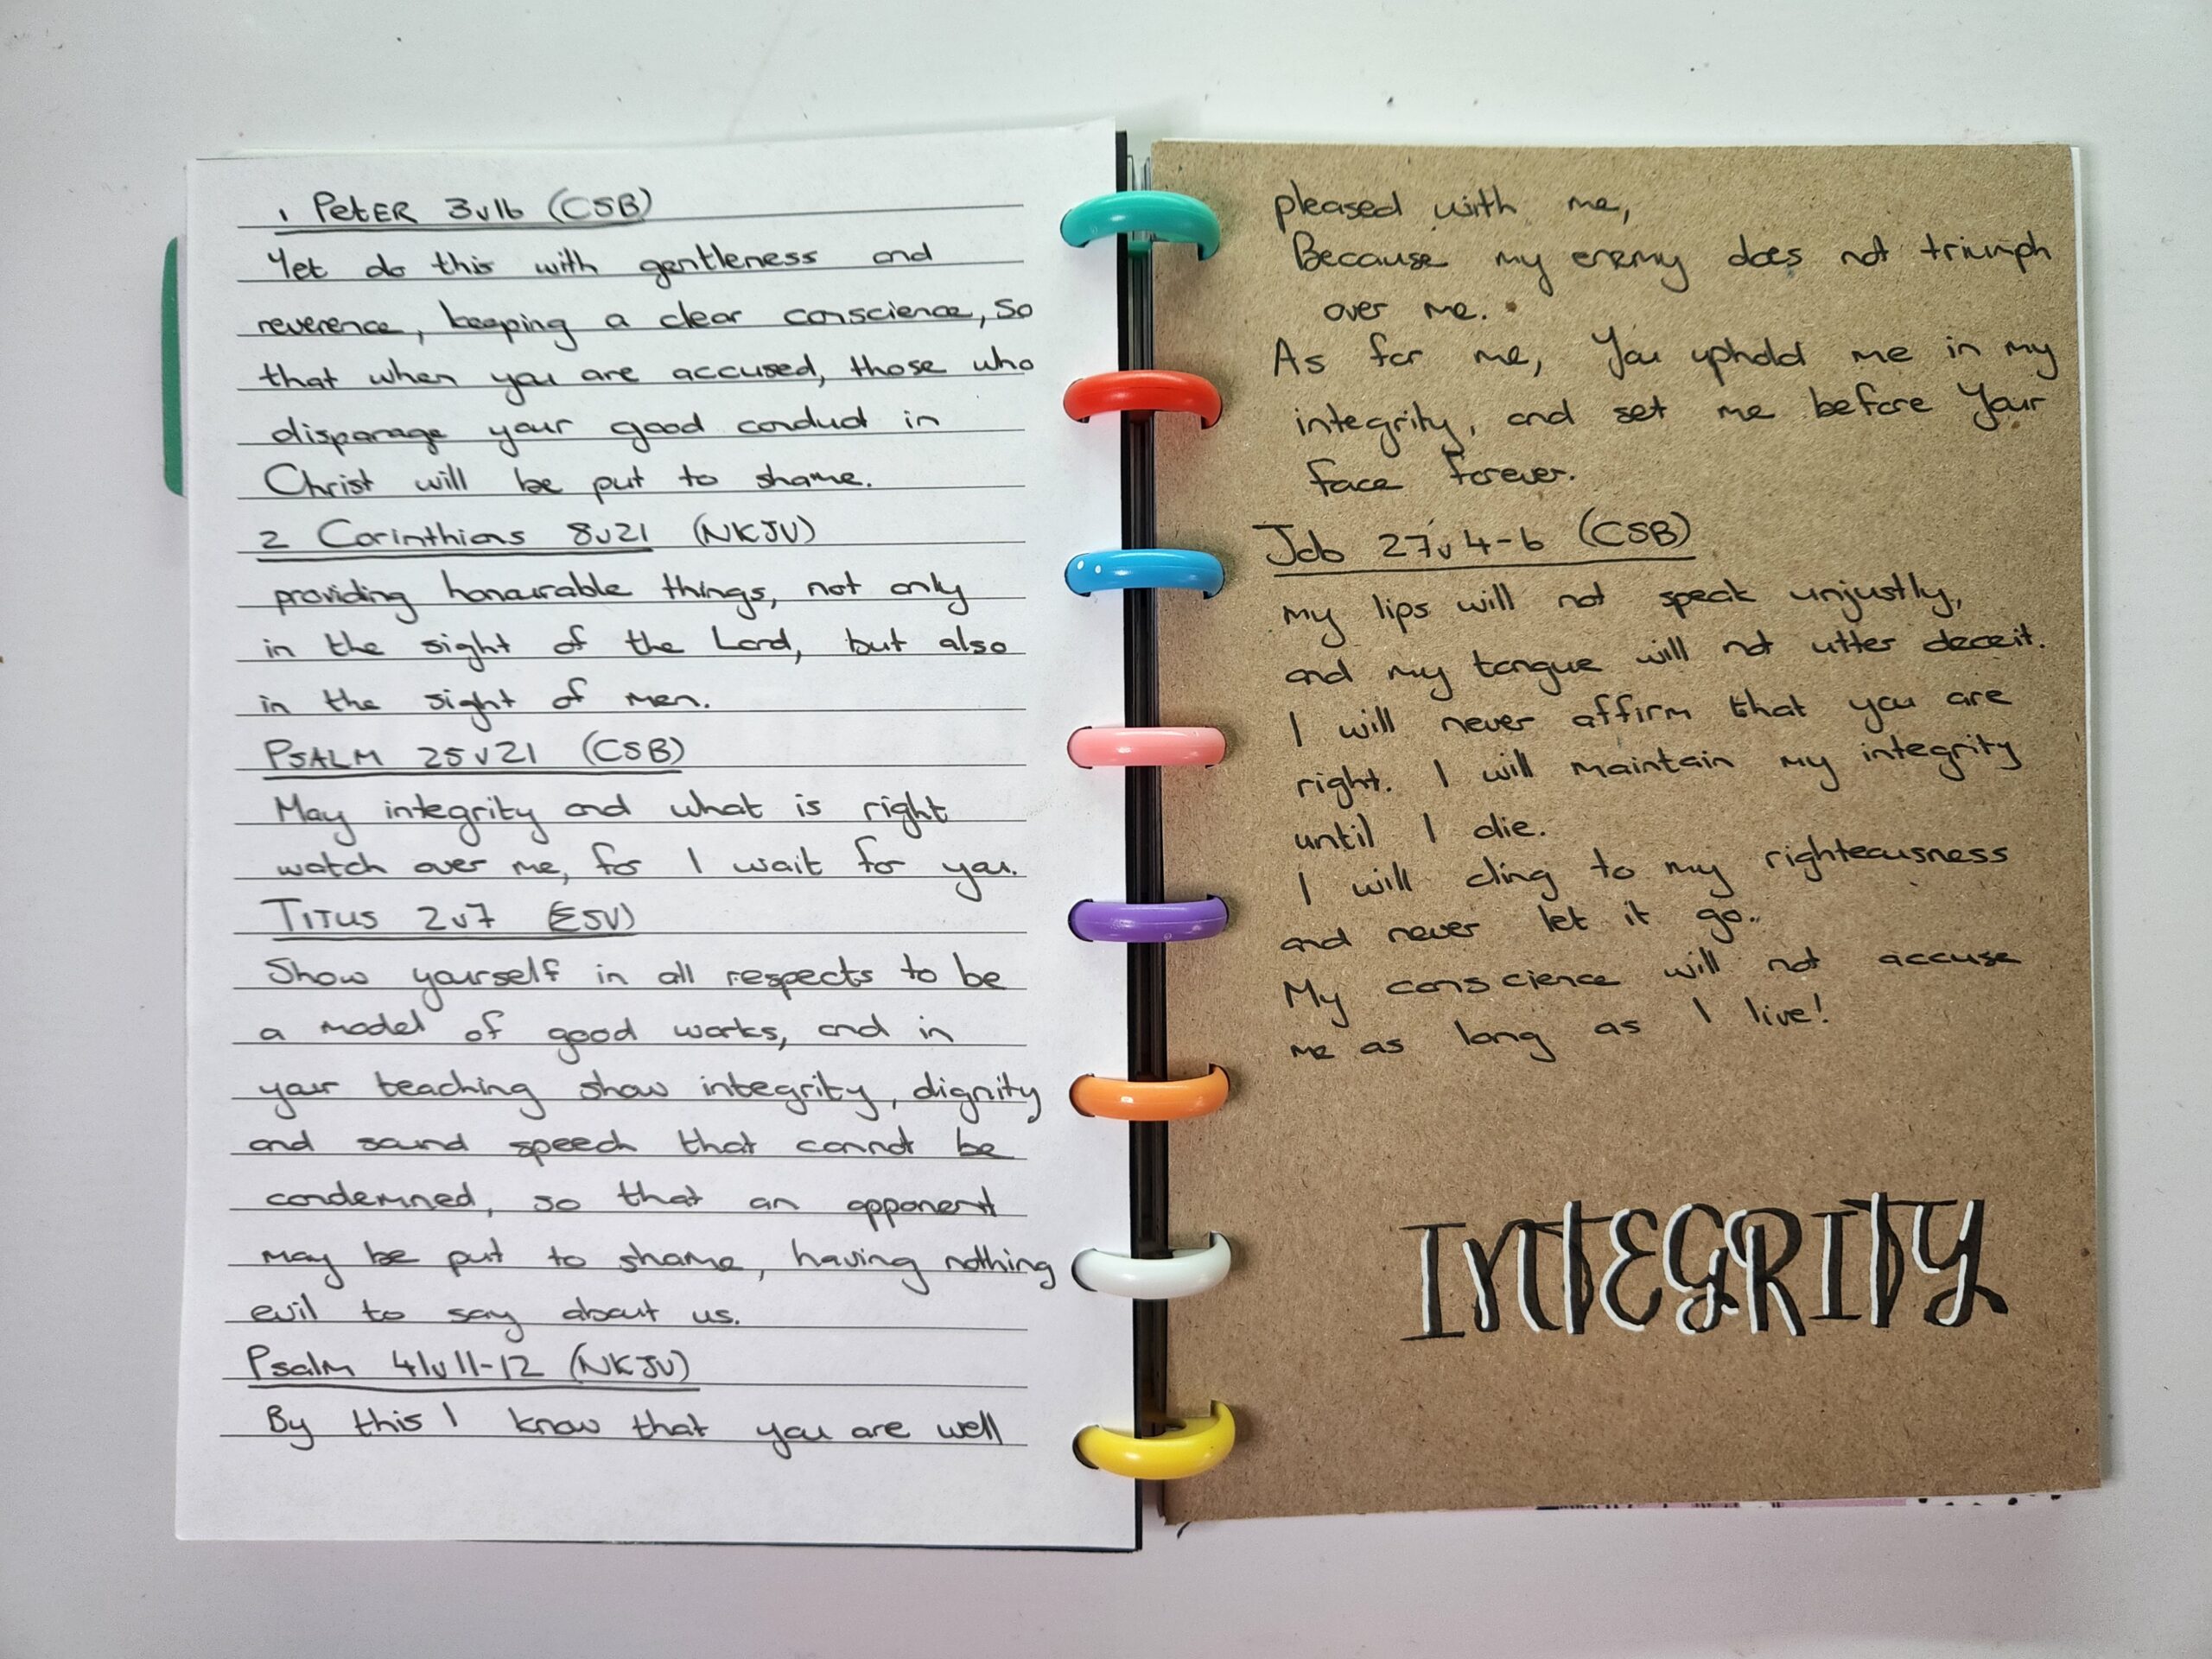 1 Peter 3v16 (CSB)
Yet do this with gentleness and
reverence, keeping a clear conscience, so
that when you are accused, those who
disparage your good conduct in
Christ will be put to shame.
2 Corinthians 8v21 (NKJV)
providing honourable things, not only
in the sight of the Lord, but also
in the sight of men.
PSALM 25v21 (CSB)
May integrity and what is right
watch over me, for I wait for you.
TITUS 2v7 (ESV)
Show yourself in all respects to be
a model of good works, and in
your teaching show integrity, dignity
and sound speech that cannot be
condemned, so that an opponent
may be put to shame, having nothing
evil to say about us.
Psalm 41v11-12 (NKJV)
By this I know that you are well
pleased with me,
Because my enemy does not triumph
over me.
As for me, You uphold me in my
integrity, and set me before Your
face forever.
Job 27v4-6 (CSB)
my lips will not speak unjustly,
and my tongue will not utter deceit.
I will never affirm that you are
right. I will maintain my integrity
until I die.
I will cling to my righteousness
and never let it go.
My conscience will not accuse
me as long as I live!
INTEGRITY